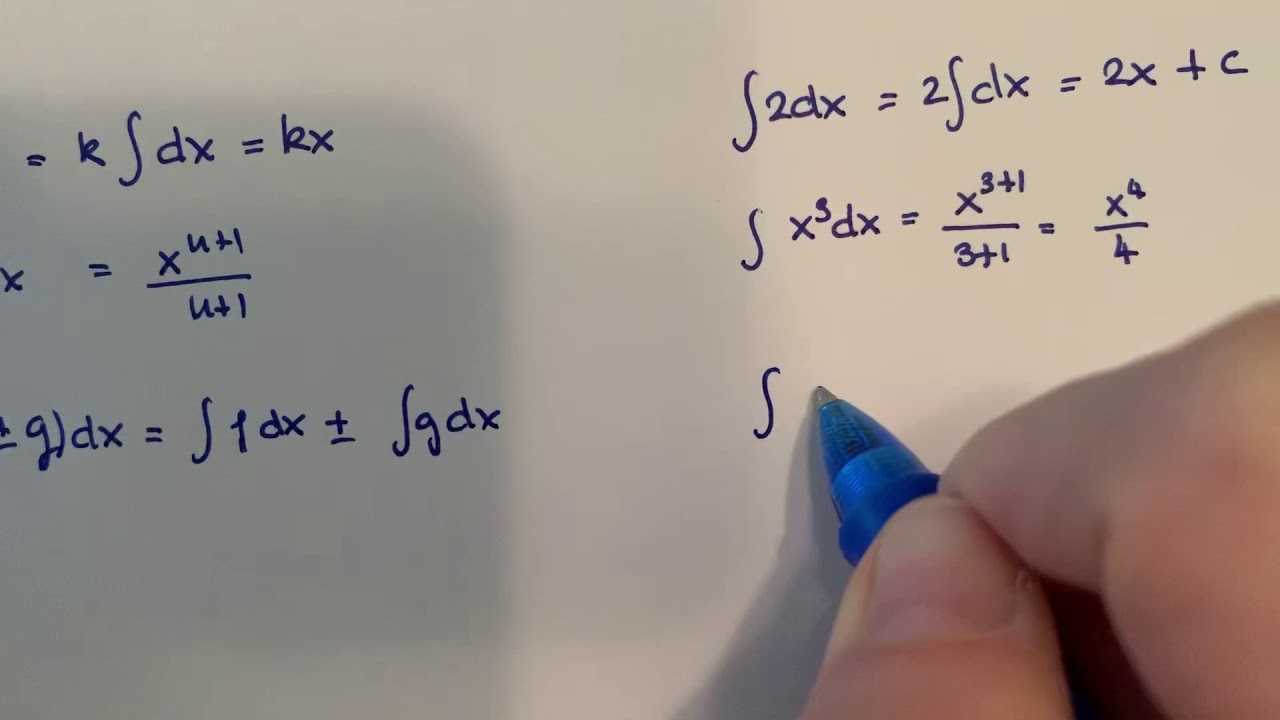 = k ∫ dx = kx
x = x^{n+1}/n+1
± g)dx = ∫ f dx ± ∫ g dx
∫ 2dx = 2∫ dx = 2x + c
∫ x^3 dx = x^{3+1}/3+1 = x^4/4
∫